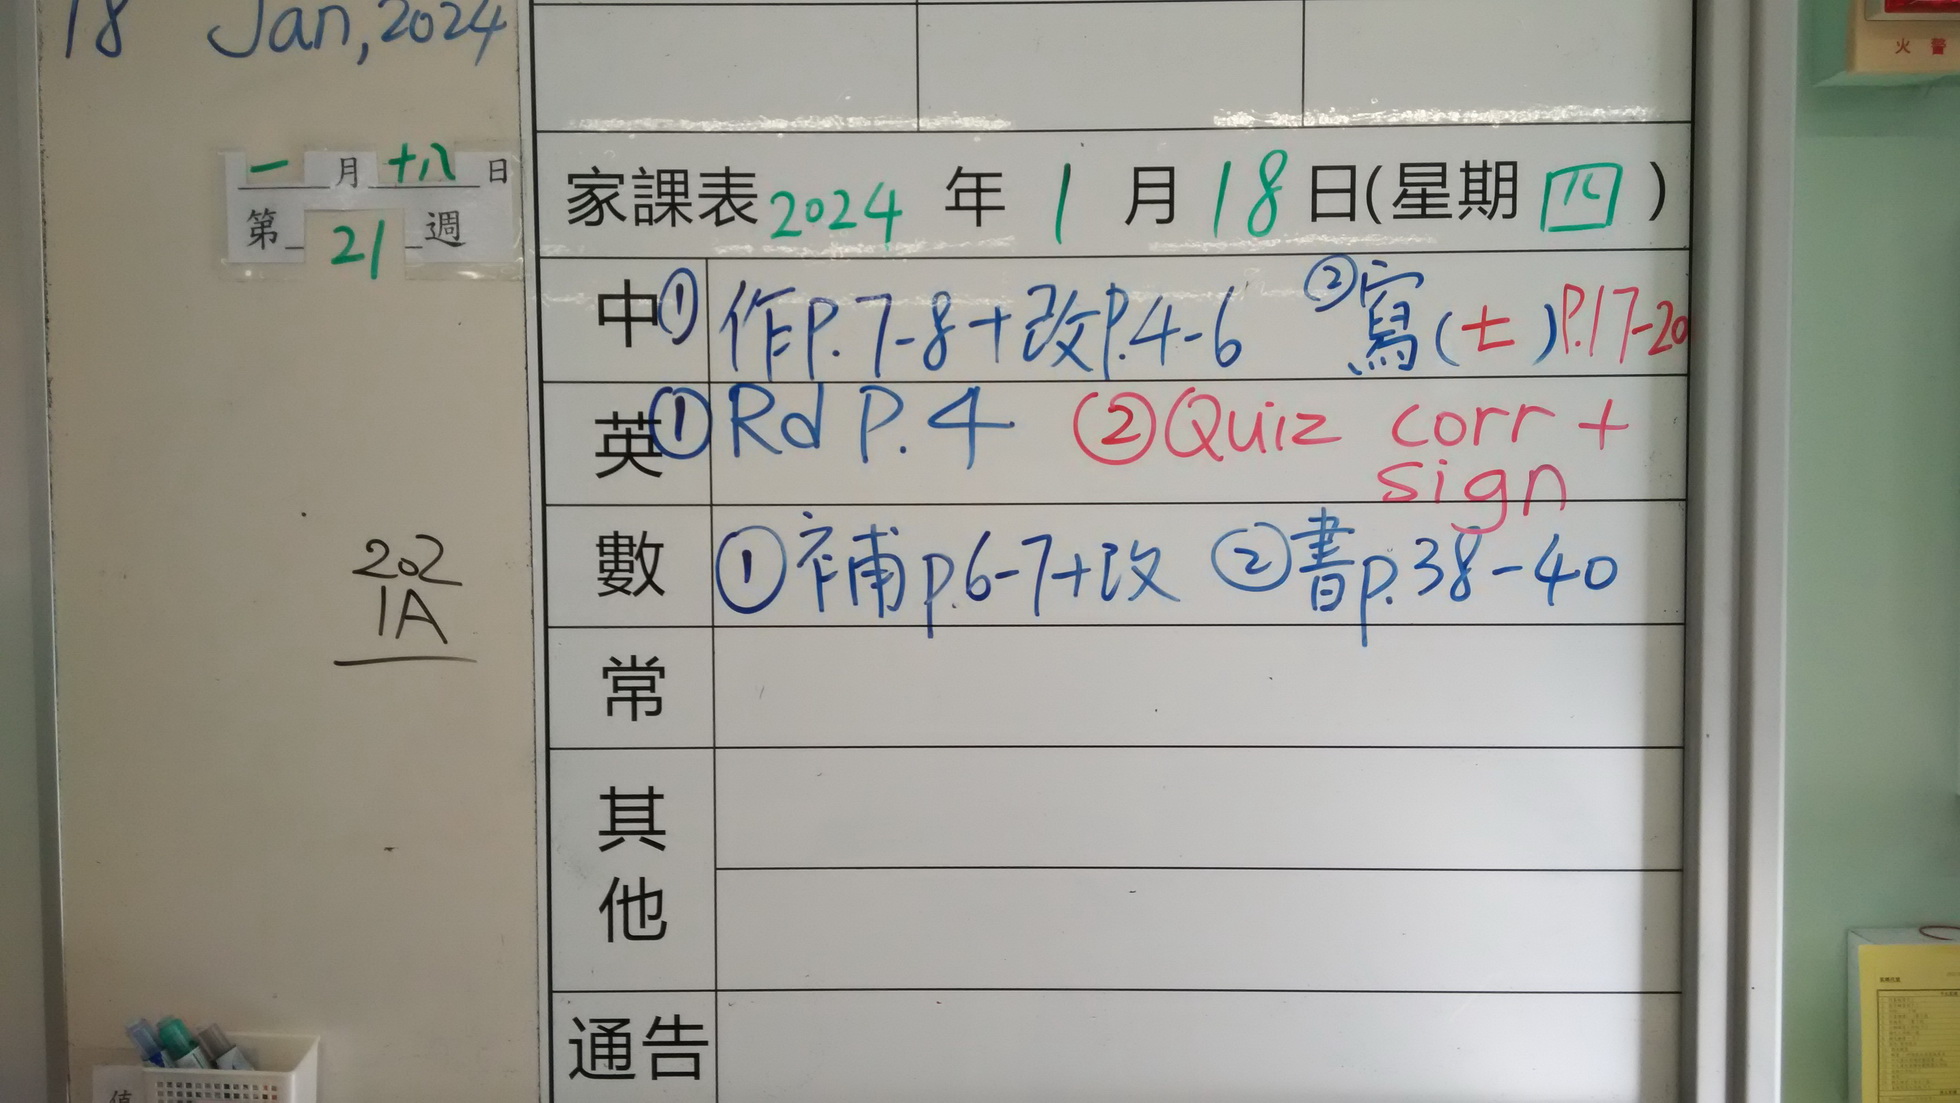 18 Jan, 2024
火 警
一月十八日
第21週
家課表 2024 年 1 月 18 日(星期四)
中 ① 作P.7-8+改P.4-6 ②寫(七)P.17-20
英 ① Rd P.4 ②Quiz corr +
sign
數 ①補p.6-7+改 ②書p.38-40
202
1A
常
其
他
通告
值